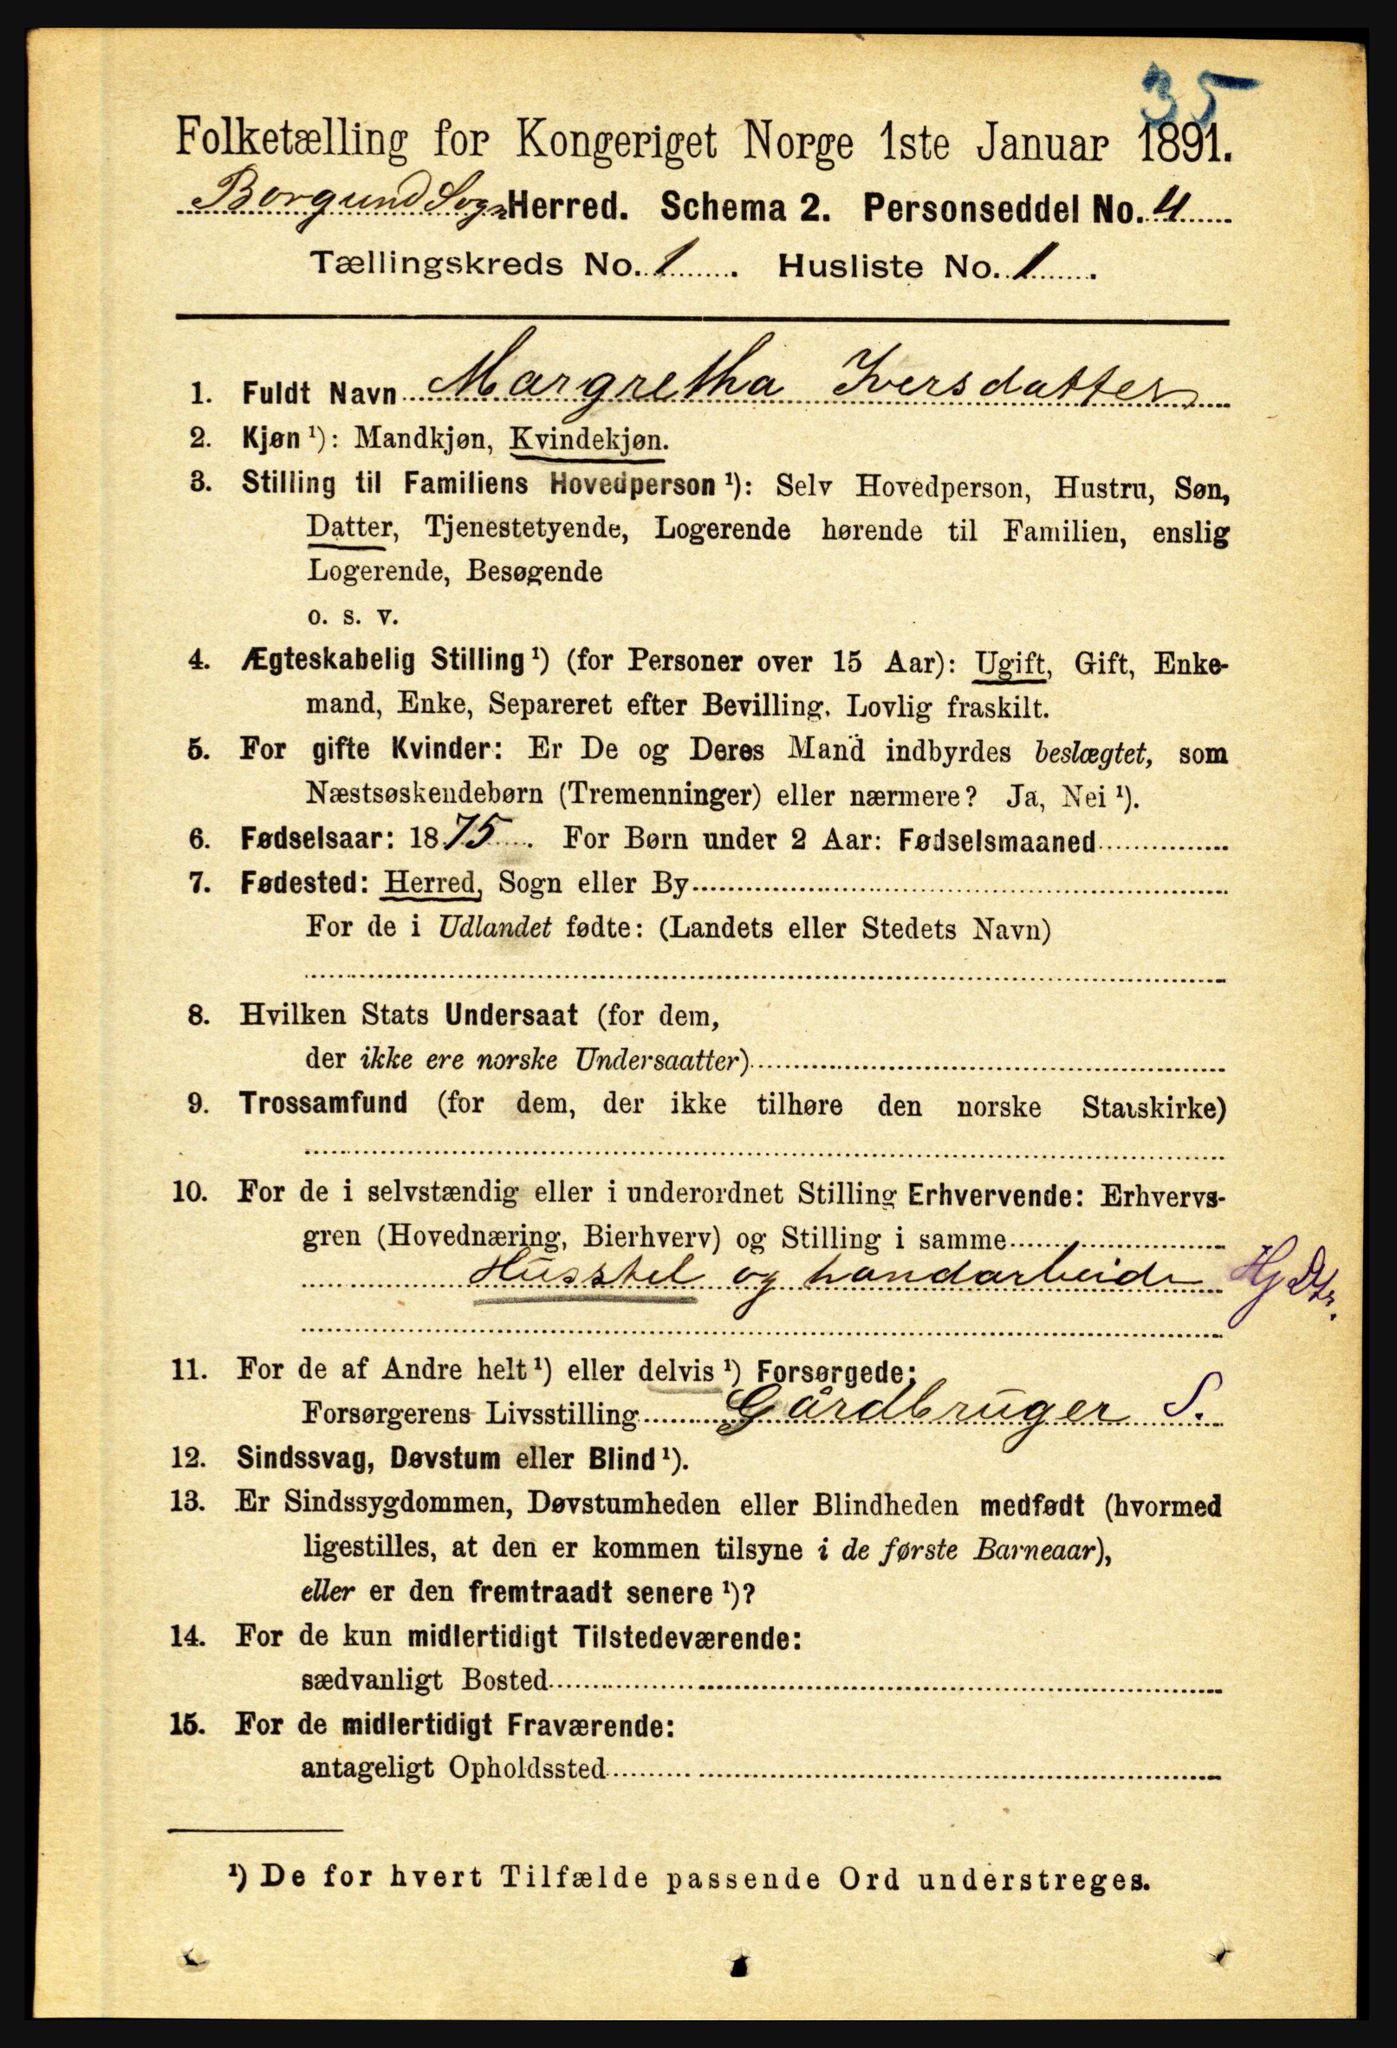 35
Folketælling for Kongeriget Norge 1ste Januar 1891.
Borgund Sogn Herred. Schema 2. Personseddel No. 4
Tællingskreds No. 1. Husliste No. 1.
1. Fuldt Navn Margretha Iversdatter
2. Kjøn ¹): Mandkjøn, Kvindekjøn.
3. Stilling til Familiens Hovedperson ¹): Selv Hovedperson, Hustru, Søn,
Datter, Tjenestetyende, Logerende hørende til Familien, enslig
Logerende, Besøgende
o. s. v.
4. Ægteskabelig Stilling ¹) (for Personer over 15 Aar): Ugift, Gift, Enke-
mand, Enke, Separeret efter Bevilling. Lovlig fraskilt.
5. For gifte Kvinder: Er De og Deres Mand indbyrdes beslægtet, som
Næstsøskendebørn (Tremenninger) eller nærmere? Ja, Nei ¹).
6. Fødselsaar: 1875. For Børn under 2 Aar: Fødselsmaaned
7. Fødested: Herred, Sogn eller By
For de i Udlandet fødte: (Landets eller Stedets Navn)
8. Hvilken Stats Undersaat (for dem,
der ikke ere norske Undersaatter)
9. Trossamfund (for dem, der ikke tilhøre den norske Statskirke)
10. For de i selvstændig eller i underordnet Stilling Erhvervende: Erhvervs-
gren (Hovednæring, Bierhverv) og Stilling i samme
Husstel og handarbeide Hj Dtr.
11. For de af Andre helt ¹) eller delvis ¹) Forsørgede:
Forsørgerens Livsstilling Gårdbruger S.
12. Sindssvag, Døvstum eller Blind ¹).
13. Er Sindssygdommen, Døvstumheden eller Blindheden medfødt (hvormed
ligestilles, at den er kommen tilsyne i de første Barneaar),
eller er den fremtraadt senere ¹)?
14. For de kun midlertidigt Tilstedeværende:
sædvanligt Bosted
15. For de midlertidigt Fraværende:
antageligt Opholdssted
¹) De for hvert Tilfælde passende Ord understreges.